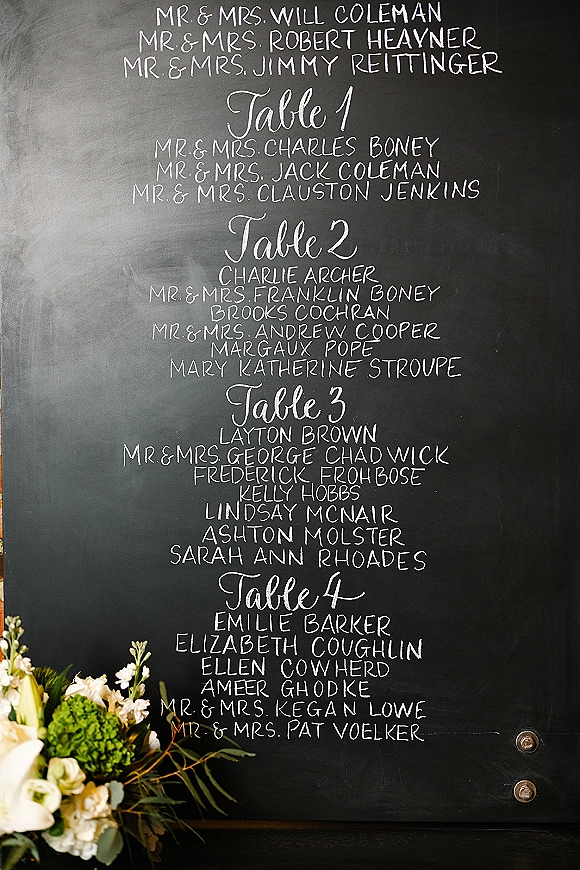 MR. & MRS. WILL COLEMAN
MR. & MRS. ROBERT HEAVNER
MR. & MRS. JIMMY REITTINGER
Table 1
MR. & MRS. CHARLES BONEY
MR. & MRS. JACK COLEMAN
MR. & MRS. CLAUSTON JENKINS
Table 2
CHARLIE ARCHER
MR. & MRS. FRANKLIN BONEY
BROOKS COCHRAN
MR. & MRS. ANDREW COOPER
MARGAUX POPE
MARY KATHERINE STROUPE
Table 3
LAYTON BROWN
MR. & MRS. GEORGE CHADWICK
FREDERICK FROHBOSE
KELLY HOBBS
LINDSAY MCNAIR
ASHTON MOLSTER
SARAH ANN RHOADES
Table 4
EMILIE BARKER
ELIZABETH COUGHLIN
ELLEN COWHERD
AMEER GHODKE
MR. & MRS. KEGAN LOWE
MR. & MRS. PAT VOELKER